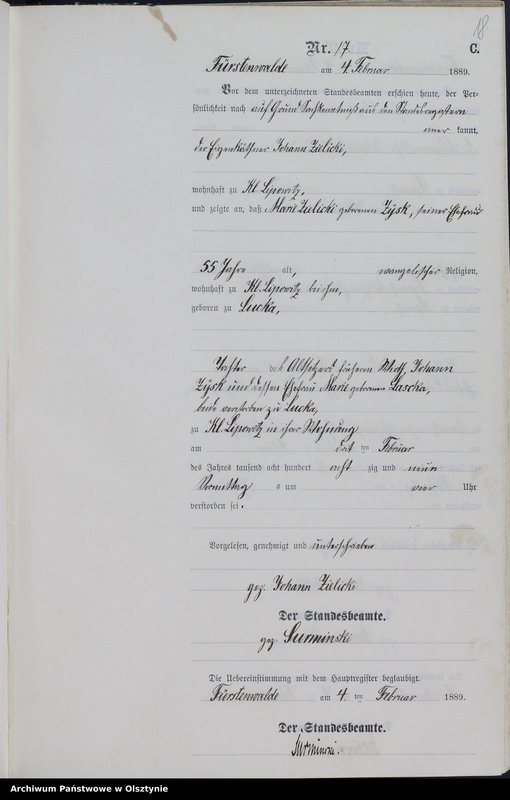 18
Nr. 17
C.
Fürstenwalde am 4. Februar 1889.
Vor dem unterzeichneten Standesbeamten erschien heute, der Per-
sönlichkeit nach auf Grund Sachkenntniß aus den Standesregistern
aner kannt,
der Eigenkäthner Johann Zielicki,
wohnhaft zu Kl. Lipowitz,
und zeigte an, daß Marie Zielicki geborenen Zysk, seiner Ehefrau
55 Jahre alt, evangelischer Religion,
wohnhaft zu Kl. Lipowitz bei ihm,
geboren zu Lucka,
Tochter des Altsitzers früheren Wirth Johann
Zysk und dessen Ehefrau Marie geborenen Lascka,
beide verstorben zu Lucka,
zu Kl. Lipowitz in ihrer Wohnung
am drit ten Februar
des Jahres tausend acht hundert acht zig und neun
Vormittag s um vier Uhr
verstorben sei.
Vorgelesen, genehmigt und unterschrieben
gez. Johann Zielicki
Der Standesbeamte.
gez. Surminski
Die Uebereinstimmung mit dem Hauptregister beglaubigt.
Fürstenwalde am 4. ten Februar 1889.
Der Standesbeamte.
Surminski.
Archiwum Państwowe w Olsztynie